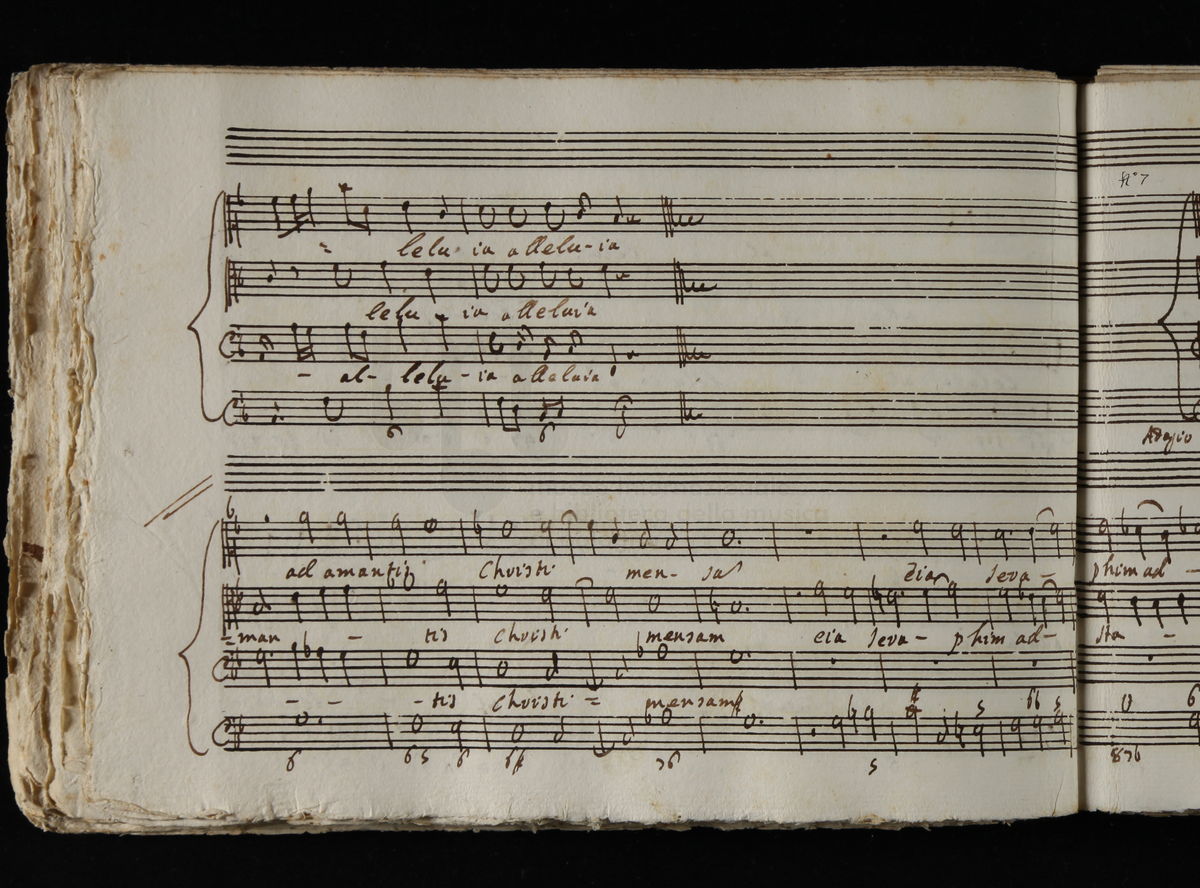 lelu-ia allelu-ia
lelu - ia alleluia
- al- lelu-ia alleluia
6 6
ad amantis Christi men- sa
Eia sera-
phim ad -
=man - tis Christi mensam eia sera- phim ad-
sta -
- - -tis Christi = mensam
6 65 6 76 5
e biblioteca della musica
No 7
Adagio